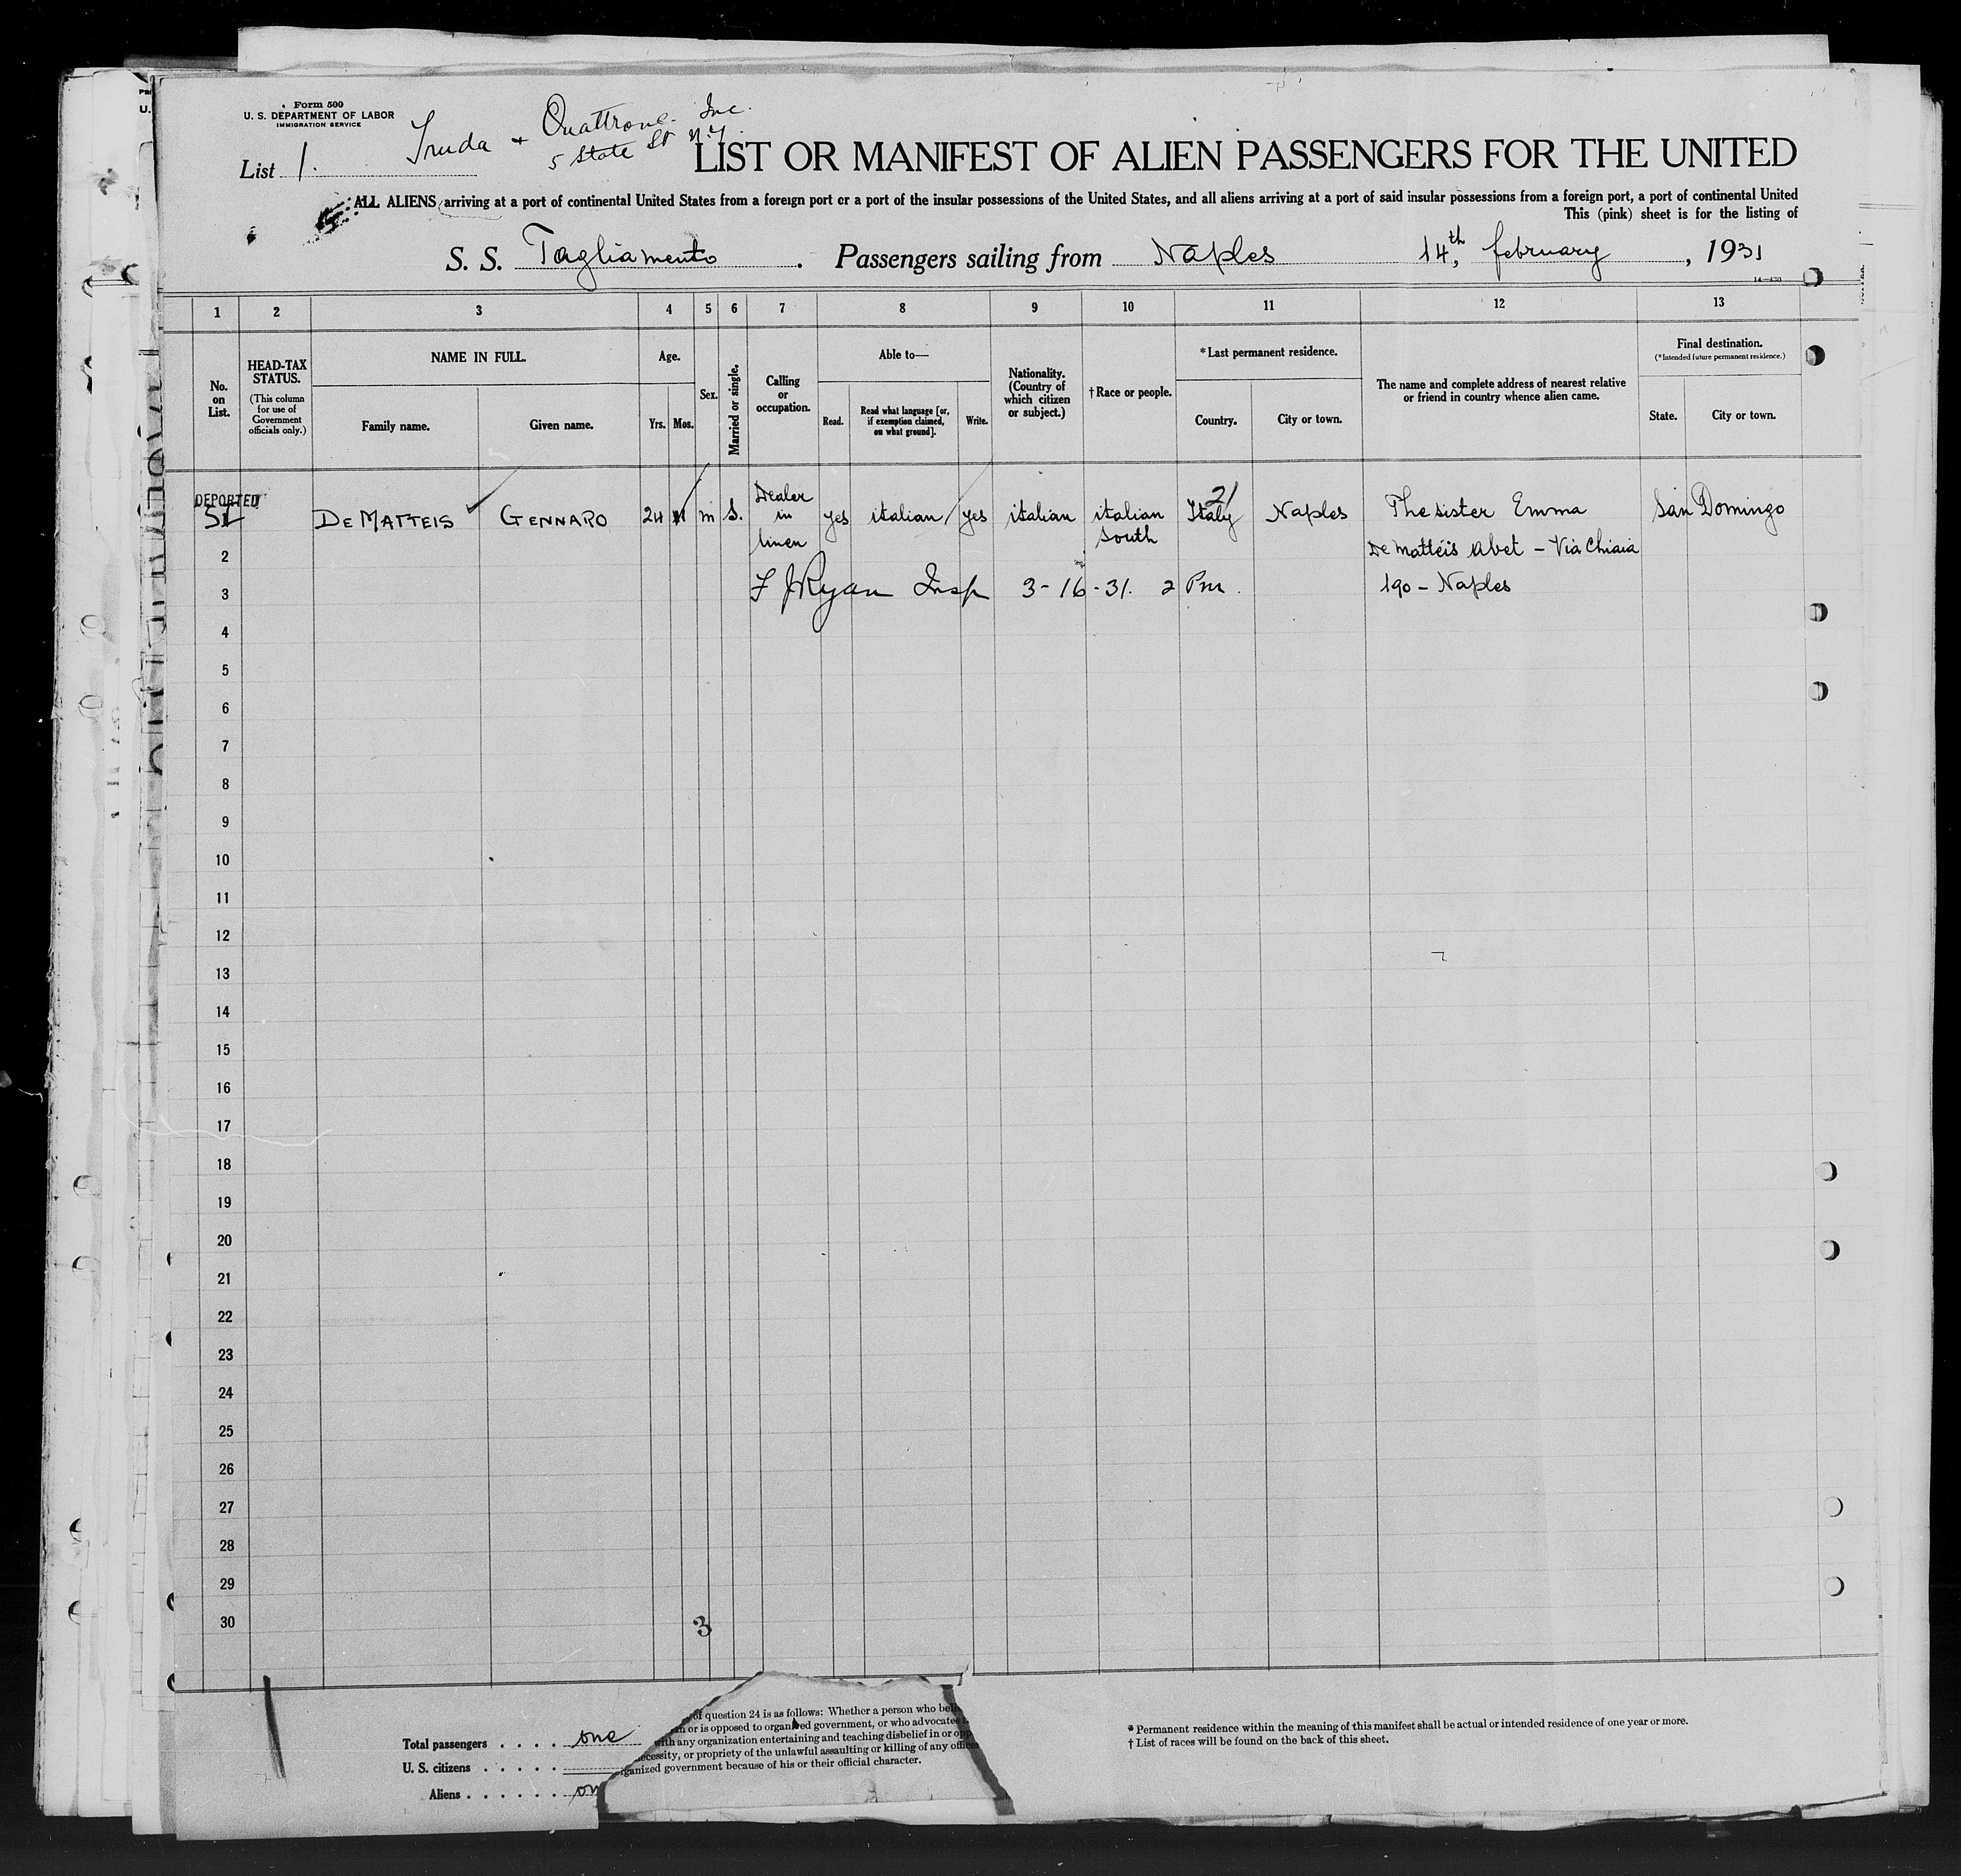 Form 500
U. S. DEPARTMENT OF LABOR
IMMIGRATION SERVICE
Truda + Quattrone Inc.
5 State St N.Y.
List 1.
LIST OR MANIFEST OF ALIEN PASSENGERS FOR THE UNITED
ALL ALIENS arriving at a port of continental United States from a foreign port or a port of the insular possessions of the United States, and all aliens arriving at a port of said insular possessions from a foreign port, a port of continental United
This (pink) sheet is for the listing of
S. S. Tagliamento. Passengers sailing from Naples 14th, february, 1931
1 2 3 4 5 6 7 8 9 10 11 12 13
No. on List.
HEAD-TAX STATUS.
(This column for use of Government officials only.)
NAME IN FULL.
Family name. Given name.
Age.
Yrs. Mos.
Sex.
Married or single.
Calling or occupation.
Able to—
Read. Read what language [or, if exemption claimed, on what ground]. Write.
Nationality. (Country of which citizen or subject.)
†Race or people.
*Last permanent residence.
Country. City or town.
The name and complete address of nearest relative or friend in country whence alien came.
Final destination.
(*Intended future permanent residence.)
State. City or town.
DEPORTED
DE MATTEIS GENNARO 24 m S. Dealer in linen yes italian yes italian italian south 21 Italy Naples The sister Emma San Domingo
2 De Matteis Abet - Via Chiaia
3 F J Ryan Insp 3-16-31. 2 Pm. 190 - Naples
4
5
6
7
8
9
10
11
12
13
14
15
16
17
18
19
20
21
22
23
24
25
26
27
28
29
30
3
Total passengers . . . . one
U. S. citizens . . . . .
Aliens . . . . . .
of question 24 is as follows: Whether a person who
or is opposed to organized government, or who advocates
with any organization entertaining and teaching disbelief in or
or propriety of the unlawful assaulting or killing of any
government because of his or their official character.
* Permanent residence within the meaning of this manifest shall be actual or intended residence of one year or more.
† List of races will be found on the back of this sheet.